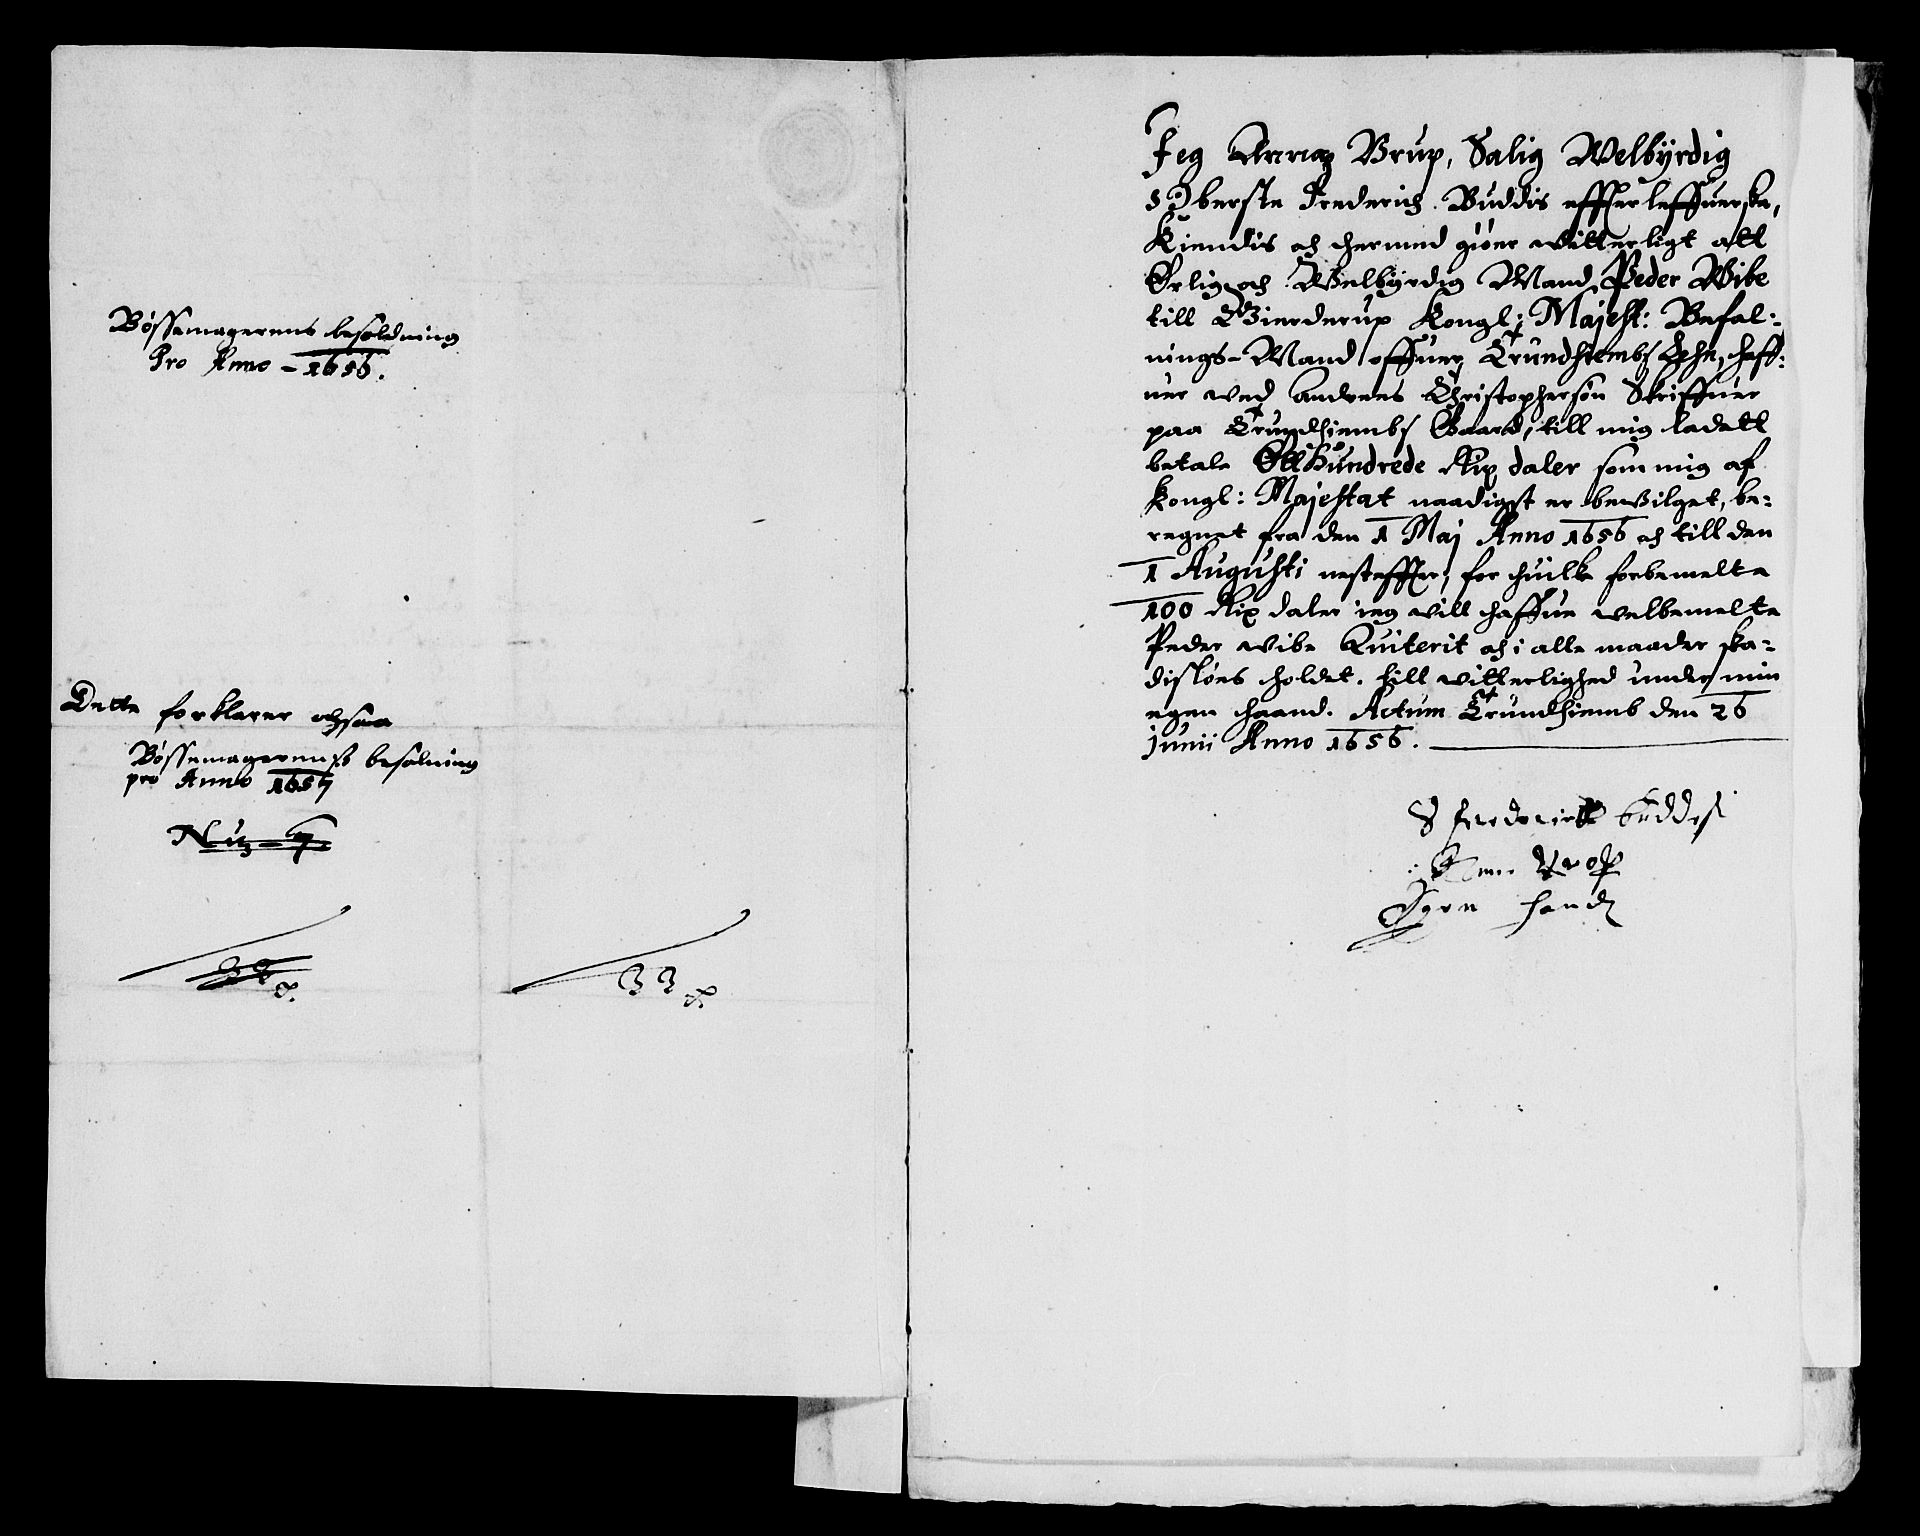 Bøssemagerens besoldning
Pro Anno - 1656.
Dette forklarer ochsaa
Bøssemagerens besolning
pro Anno 1657
No 7.
33
Jeg Anna Vrup, Salig Welbÿrdig
Oberste Frederich Buddis effterleffuerske,
Kiendis och hermed giør witterligt att
Ærlig och Welbÿrdig Mand, Peder Wibe
till Gierderup Kongl: Majest: Befal:
nings-Mand offuer Trundhiembs Lehn, haff:
uer wed Andrees Christophersøn Skriffuer
paa Trundhiembs Gaard, till mig ladett
betale Ett Hundrede Rix daler som mig af
Kongl: Majestat naadigst er bewilget, be-
regnet fra den 1 Maj Anno 1656 och till den
1 Augusti nesteffter, for huilke forbemelte
100 Rix daler ieg will haffue welbemelte
Peder Wibe Quiterit och i alle maader ska-
disløes holdet. till witterlighed under min
egen haand. Actum Trundhiemb den 26
Junii Anno 1656.
S Frederick Buddes
Anne Vrop
Egen hand